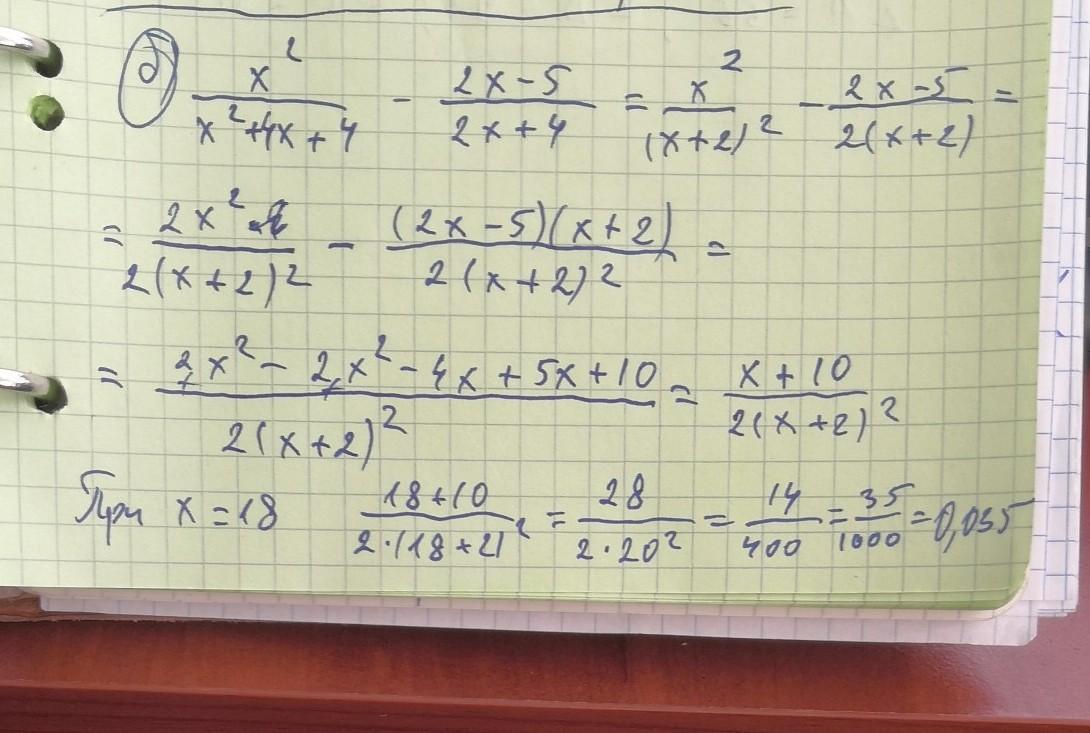 б) x²/(x²+4x+4) - (2x-5)/(2x+4) = x²/(x+2)² - (2x-5)/(2(x+2)) =
= 2x²/(2(x+2)²) - (2x-5)(x+2)/(2(x+2)²) =
= (2x² - 2x² - 4x + 5x + 10)/(2(x+2)²) = (x+10)/(2(x+2)²)
При x = 18 (18+10)/(2·(18+2)²) = 28/(2·20²) = 14/400 = 35/1000 = 0,035